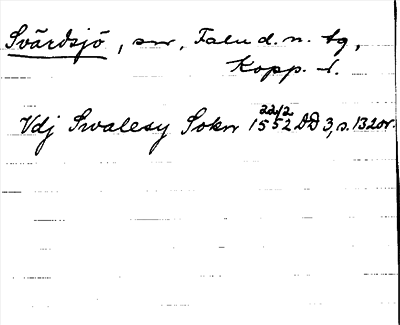 Svärdsjö, sn, Falu d. n. tg,
Kopp. l.
Vdj Swalesy Sokn 22/2 1552 DD 3, s. 132or.